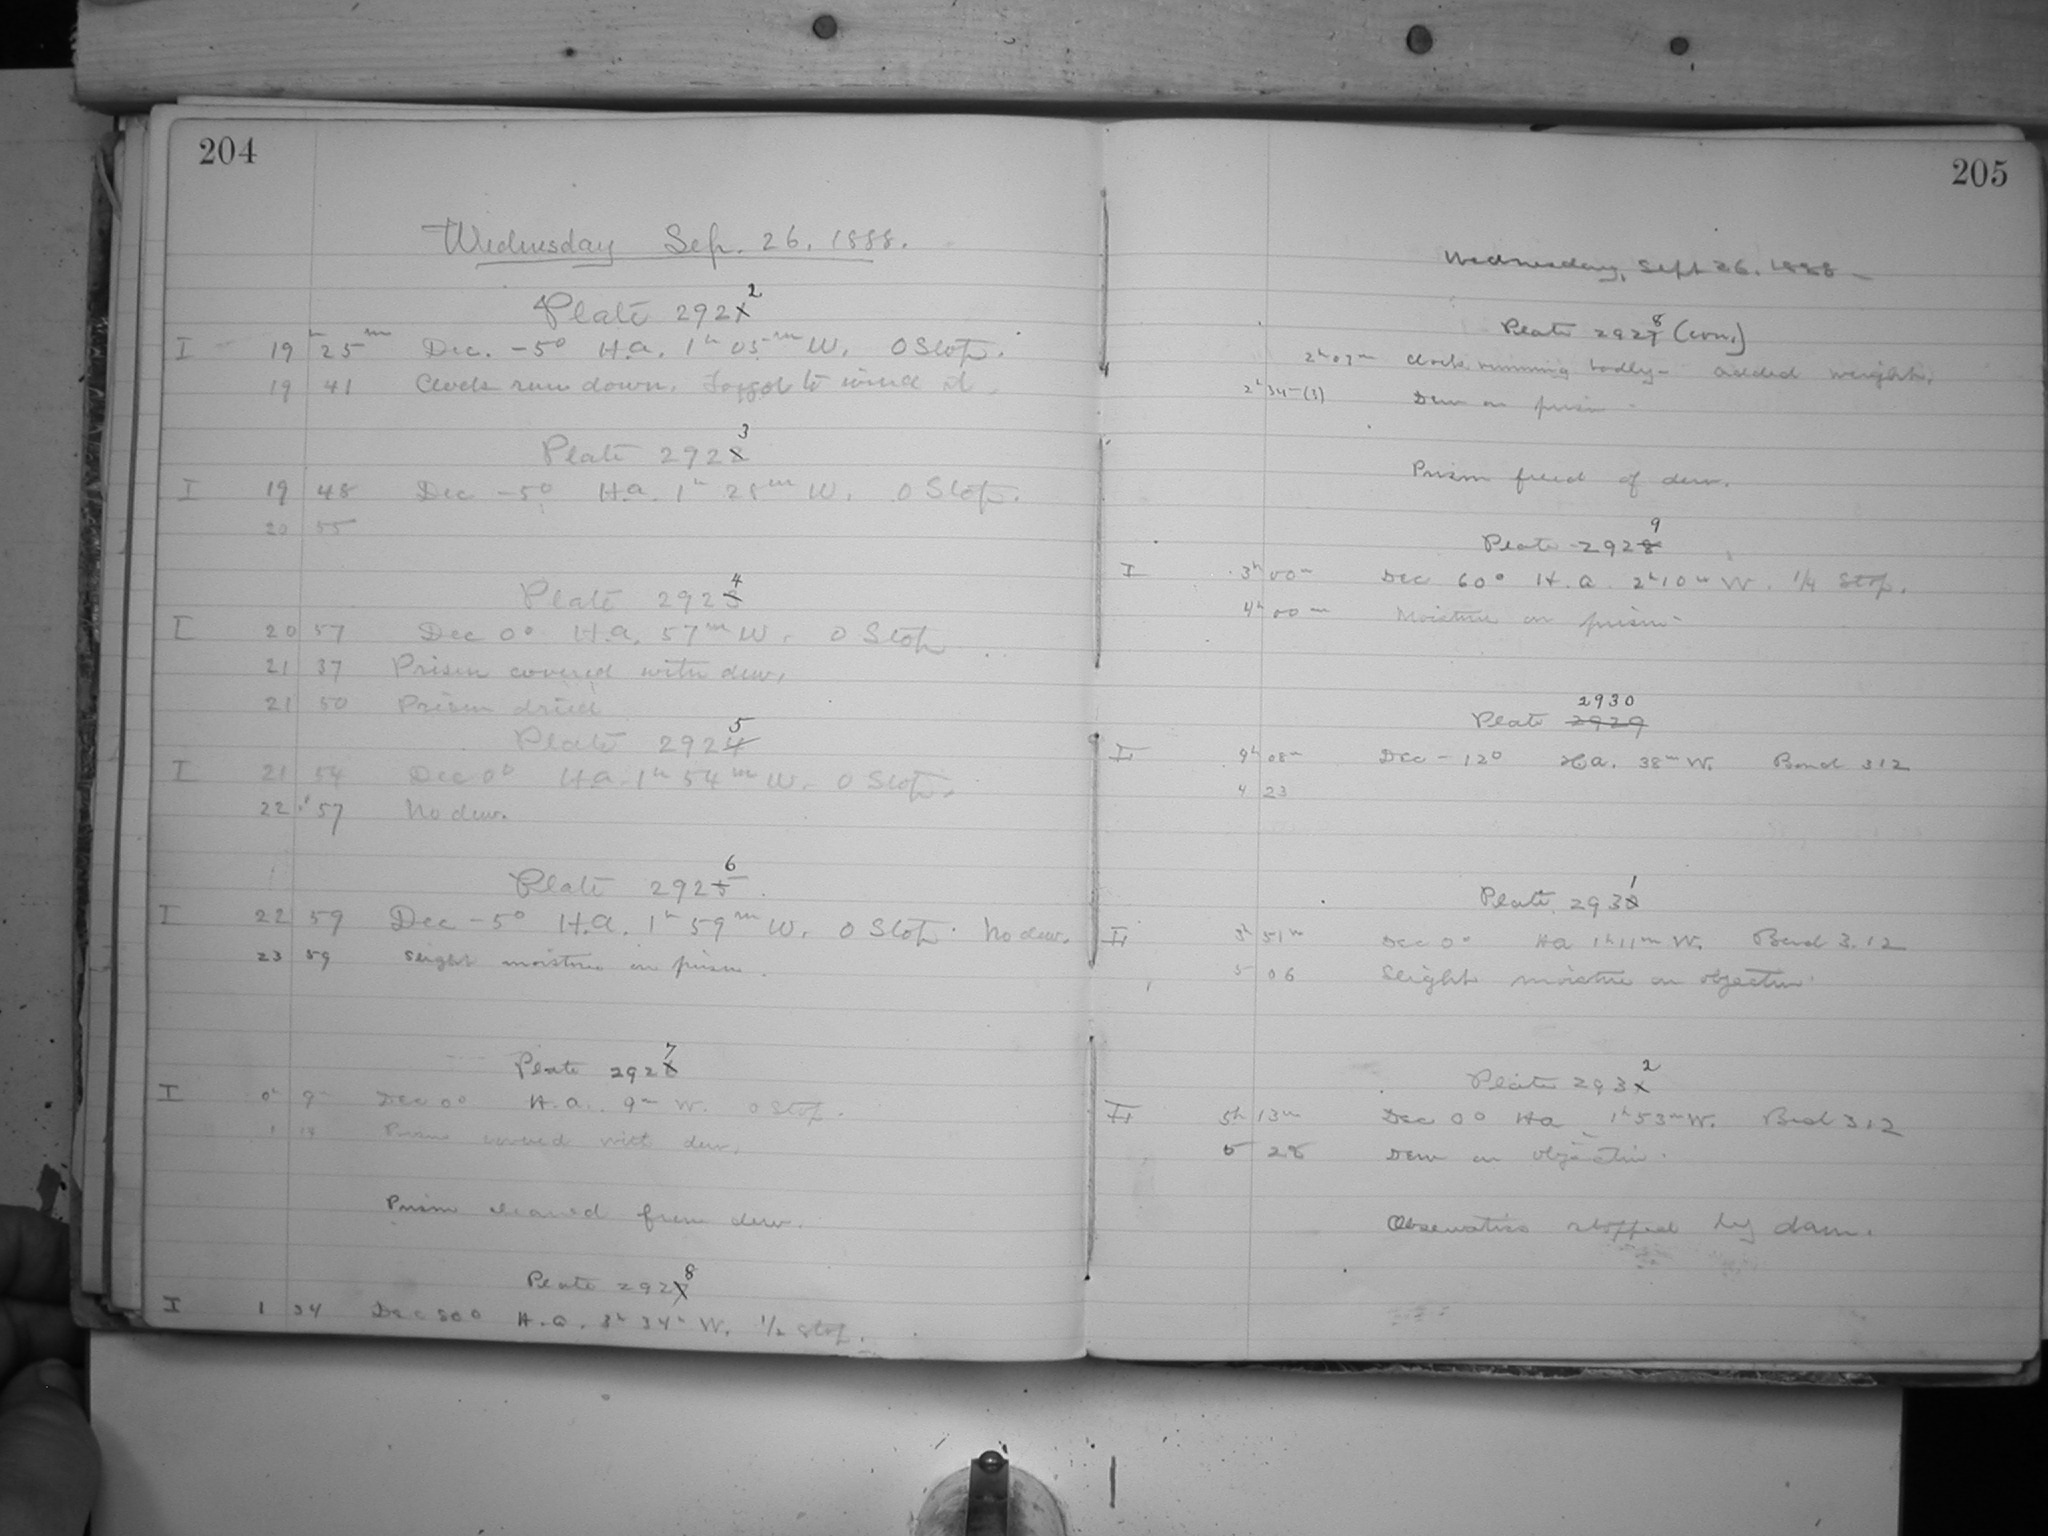 204
Wednesday Sep. 26. 1888.
Plate 2921 2
I 19 h 25 m Dec. -5° H.a. 1h 05m W. 0 Stop.
19 41 Clock run down. Forgot to wind it.
Plate 2922 3
I 19 48 Dec -5° H.a. 1h 28m W. 0 Stop.
20 55
Plate 2923 4
I 20 57 Dec 0° H.a. 57m W. 0 Stop
21 37 Prism covered with dew.
21 50 Prism dried
Plate 2924 5
I 21 54 Dec 0° H.a. 1h 54m W. 0 Stop.
22 57 No dew.
Plate 2925 6
I 22 59 Dec -5° H.a. 1h 59m W. 0 Stop. No dew.
23 59 Slight moisture on prism.
Plate 2926 7
I 0h 9 Dec 0° H.a. 9m W. 0 Stop.
1 Prism covered with dew.
Prism cleared from dew.
Plate 2927 8
I 1 34 Dec 80° H.a. 3h 34m W. 1/2 Stop.
205
Wednesday, Sept 26. 1888
Plate 2927 8 (con.)
2h 07m Clock running badly - added weight.
2h 34m (3) Dew on prism
Prism freed of dew.
Plate 2928 9
I 3h 00m Dec 60° H.a. 2h 10m W. 1/4 Stop.
4h 00m Moisture on prism
2930
Plate 2929
II 08m Dec -12° H.a. 38m W. Bond 312
4 23
Plate 2930 1
II 3h 51m Dec 0° Ha 1h 11m W. Bond 312
5 06 Slight moisture on objective
Plate 2931 2
II 5h 13m Dec 0° Ha 1h 53m W. Bond 312
5 28 Dew on objective.
Observation stopped by dawn.